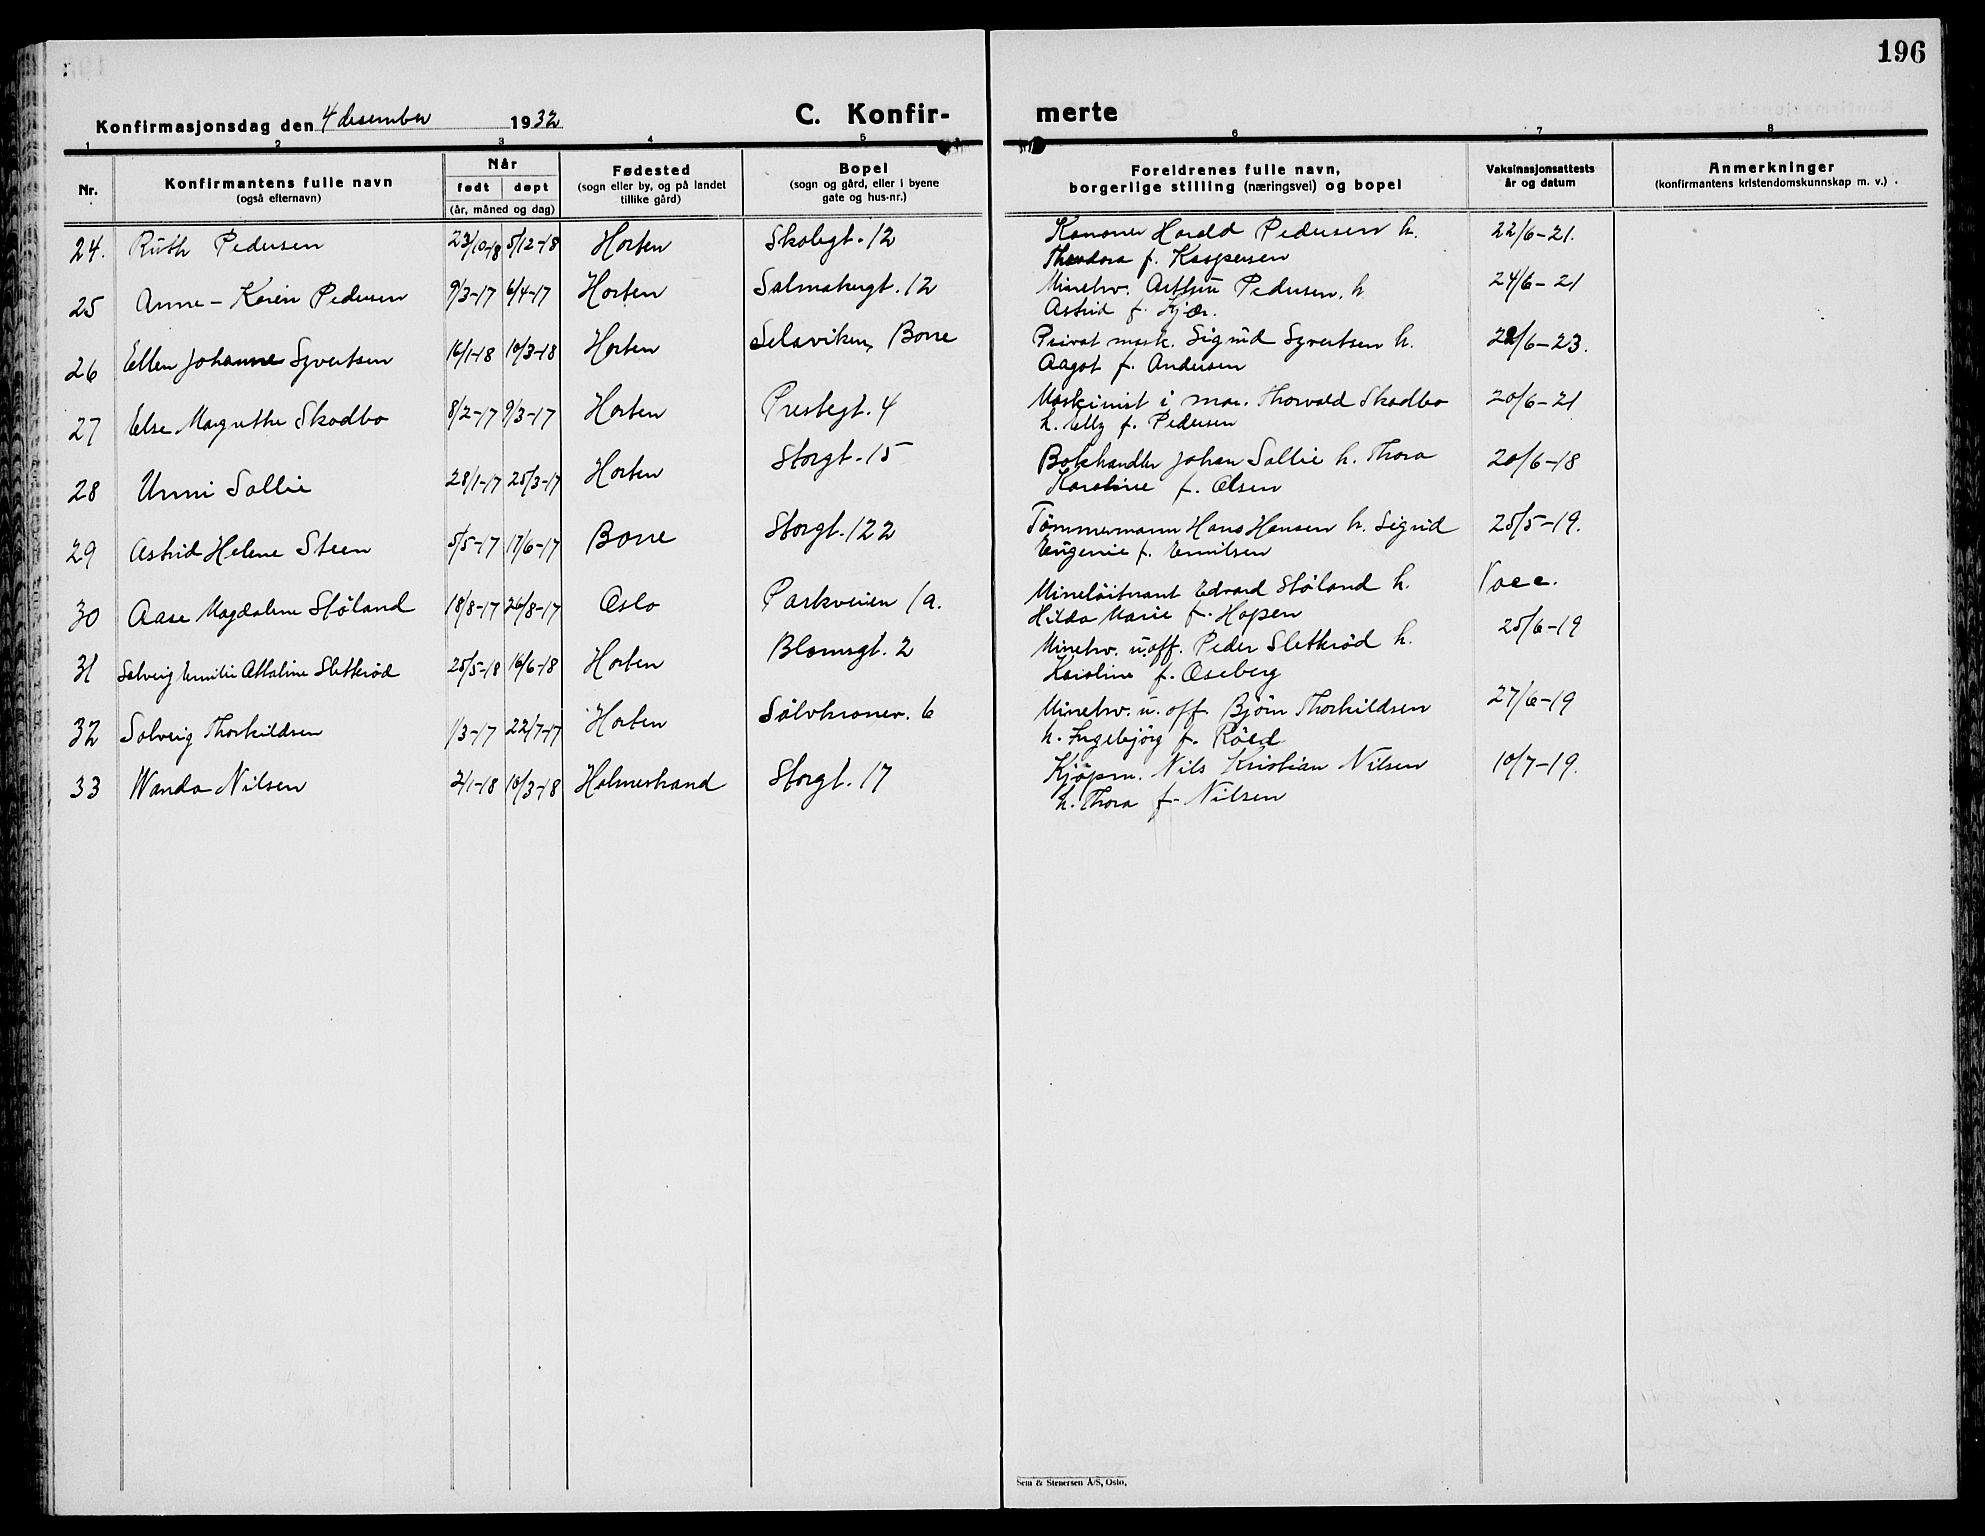 196
Konfirmasjonsdag den 4 desember 1932 C. Konfir- merte
1 2 3 4 5 6 7 8
Nr. Konfirmantens fulle navn (også efternavn) Når født døpt (år, måned og dag) Fødested (sogn eller by, og på landet tillike gård) Bopel (sogn og gård, eller i byene gate og hus-nr.) Foreldrenes fulle navn, borgerlige stilling (næringsvei) og bopel Vaksinasjonsattests år og datum Anmerkninger (konfirmantens kristendomskunnskap m. v.)
24. Ruth Pedersen 23/10-18 5/12-18 Horten Skolegt. 12 Kanoner Harald Pedersen h. 22/6-21.
Theodora f. Kaspersen
25 Anne - Karin Pedersen 9/3-17 6/4-17 Horten Salmakergt. 12 Minetrv. Arthur Pedersen. h 24/6-21
Astrid f. Kjær.
26 Ellen Johanne Syvertsen 16/1-18 10/3-18 Horten Selaviken, Borre Privat mask. Sigurd Syvertsen h. 22/6-23.
Aagot f. Andersen
27 Else Margrethe Skodbo 8/2-17 9/3-17 Horten Prestegt. 4 Maskinist i mar. Thorvald Skodbo 20/6-21
h. Elly f. Pedersen
28 Unni Sollie 28/1-17 25/3-17 Horten Storgt. 15 Bokhandler Johan Sollie h. Thora 20/6-18
Karoline f. Olsen
29 Astrid Helene Steen 5/5-17 17/6-17 Borre Storgt. 122 Tømmermann Hans Hansen h. Sigrid 25/5-19.
Eugenie f. Emilsen
30 Aase Magdalene Støland 18/8-17 26/8-17 Oslo Parkveien 1a. Mineløitnant Edvard Støland h. Vacc.
Hilda Marie f. Hopen
31 Solveig Emilie Attaline Sletterød 25/5-18 16/6-18 Horten Blomsgt. 2 Minetrv. u.off. Peder Sletterød h. 25/6-19
Karoline f. Oseberg
32 Solveig Thorkildsen 1/3-17 22/7-17 Horten Sølvkronev. 6 Minetrv. u. off. Bjørn Thorkildsen 27/6-19
h. Ingebjørg f. Röed
33 Wanda Nilsen 2/1-18 10/3-18 Holmestrand Storgt. 17 Kjøpm. Nils Kristian Nilsen 10/7-19.
h. Thora f. Nilsen
Sem & Stenersen A/S, Oslo.